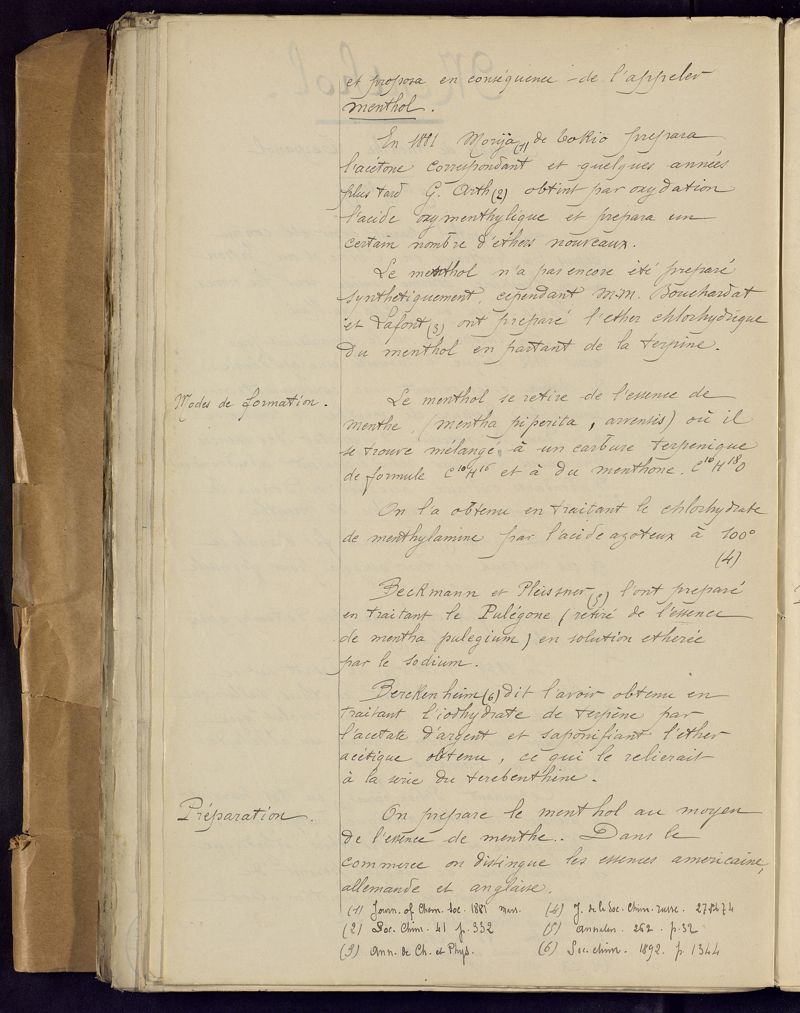 et proposa en conséquence de l'appeler
menthol.
En 1881 Moriya (1) de Tokio prepara
l'acétone correspondant et quelques années
plus tard G. Arth (2) obtint par oxydation
l'acide oxymenthylique et prepara un
certain nombre d'éthers nouveaux.
Le menthol n'a pas encore été preparé
synthetiquement, cependant M.M. Bouchardat
et Lafont (3) ont préparé l'ether chlorhydrique
du menthol en partant de la terpine.
Modes de formation.
Le menthol se retire de l'essence de
menthe (mentha piperita, arvensis) où il
se trouve mélangé à un carbure terpenique
de formule C¹⁰H¹⁶ et à du menthone. C¹⁰H¹⁸O
On l'a obtenu en traitant le chlorhydrate
de menthylamine par l'acide azoteux à 100°
(4)
Beckmann et Pleissner (5) l'ont preparé
en traitant le Pulégone (retiré de l'essence
de mentha pulegium) en solution etherée
par le sodium.
Berckenheim (6) dit l'avoir obtenu en
traitant l'iodhydrate de terpène par
l'acetate d'argent et saponifiant l'ether
acétique obtenu, ce qui le relierait
à la serie du terebenthène.
Préparation.
On prepare le menthol au moyen
de l'essence de menthe.. Dans le
commerce on distingue les essences americaine,
allemande et anglaise.
(1) Journ. of Chem. Soc. 1881 mars.
(2) Soc. Chim. 41 p. 332
(3) Ann. de Ch. et Phys.
(4) J. de la Soc. Chim. russe.
(5) Annalen. 262. p. 32
(6) Soc. chim. 1892. p. 1344